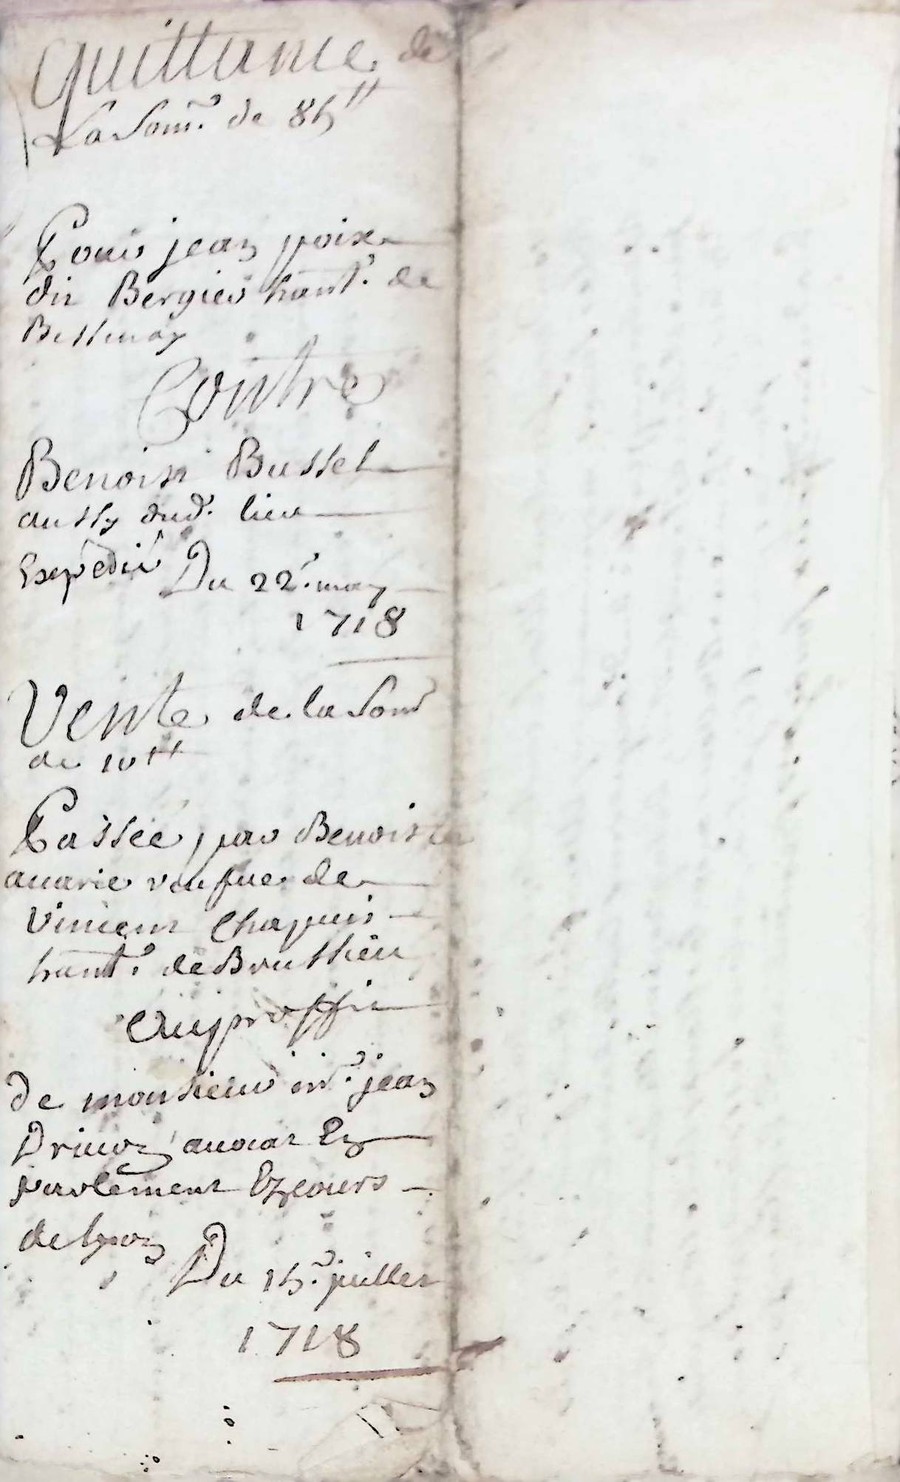 Quittance de
La Som.e de 85tt
Pour jean poix
dit Bergier hant. de
Bessenay
Contre
Benoist Bussel
aussy dud. lieu
Expedié Du 22.e may
1718
Vente de la Som
de 10tt
Passée par Benoiste
avarie veufve de
Vincent Chapuis
hant. de Brussieu
Au proffit
de monsieur m.e jean
avocat En
parlement Ez cours
de lyon
Du 15.e juillet
1718